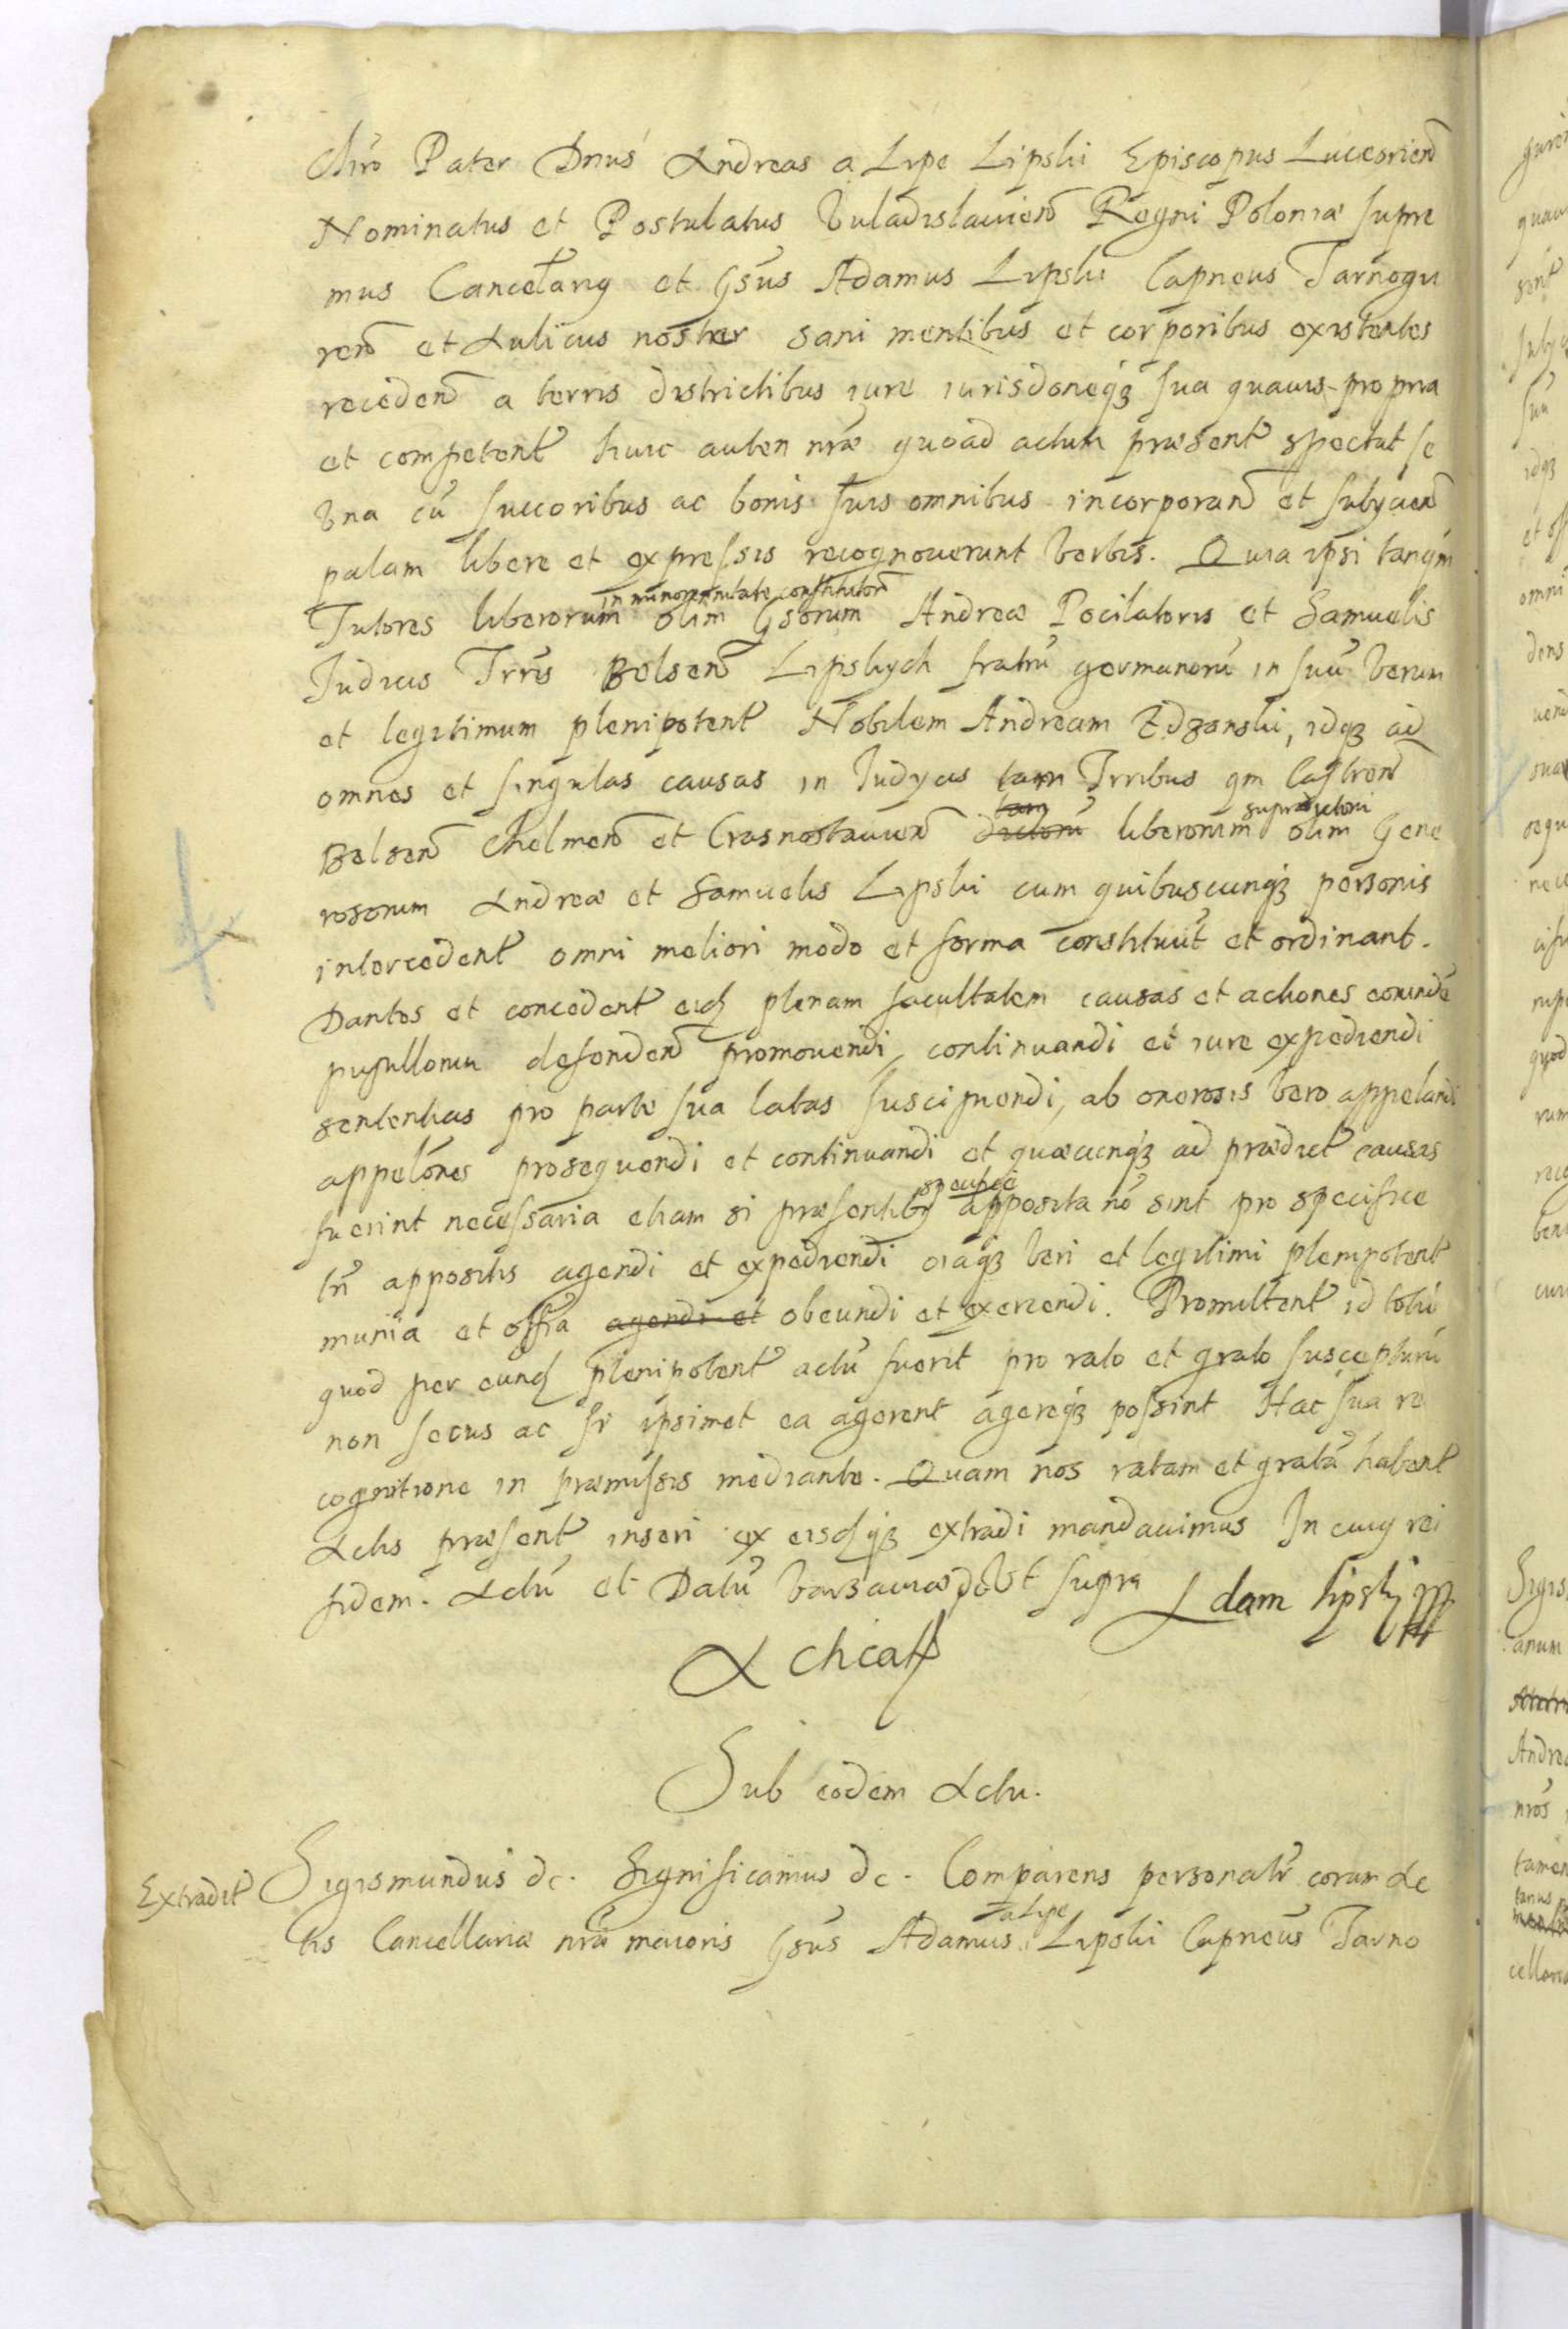 Chro Pater Dnus Andreas a Lipe Lipski Episcopus Luceorien
Nominatus et Postulatus Vuladislauien Regni Poloniæ supre
mus Cancellarius et Gsus Adamus Lipski Capneus Tarnogu
ren et Aulicus noster sani mentibus et corporibus existentes
receden a terris districtibus iure iurisdoneqz sua quauis propria
et competent huic autem nræ quoad actum præsent spectat se
Vna cũ succoribus ac bonis suis omnibus incorporan et subycien
palam libere et expressis recognouerunt verbis. Quia ipsi tanqm
in minorennitate constitutor
Tutores liberorum olim Gsorum Andreæ Pocilatoris et Samuelis
Iudicis Trris Belsen Lipskych fratrũ germanorũ in suũ verum
et legitimum plenipotent Nobilem Andream Zdzanski, idqz ad
omnes et singulas causas in Iudycis tam Trribus qm Castren
tam supradictorũ
Belsen Chelmen et Crasnostauien dictorũ liberorum olim Gene
rosorum Andreæ et Samuelis Lipski cum quibuscunqz personis
intercedent omni meliori modo et forma constituũt et ordinant.
Dantes et concedent eid plenam facultatem causas et actiones eorundẽ
pupillorum defenden promouendi, continuandi et iure expediendi
sententias pro parte sua latas suscipiendi, ab onerosis vero appelandi
appelõnes prosequendi et continuandi et quæcunqz ad prædict causas
specifice
fuerint necessaria etiam si præsentibus apposita nõ sint pro specifice
tñ appositis agendi et expediendi oiaqz veri et legitimi plenipotent
munia et offia agendi et obeundi et exercendi. Promittent id totũ
quod per eund plenipotent actũ fuerit pro rato et grato suscepturũ
non secus ac si ipsimet ea agerent agereqz possint Hac sua re
cognitione in præmissis mediante. Quam nos ratam et gratã habent
Actis præsent inseri ex eisdqz extradi mandauimus In cuius rei
fidem. Actũ et Datũ Varsauiæ dc Vt supra Adam Lipski mp
Sub eodem Actu.
Extradit Sigismundus dc. Significamus dc. Comparens personalr coram Ac
a Lipe
tis Cancellariæ nræ maioris Gsus Adamus Lipski Capneus Tarno